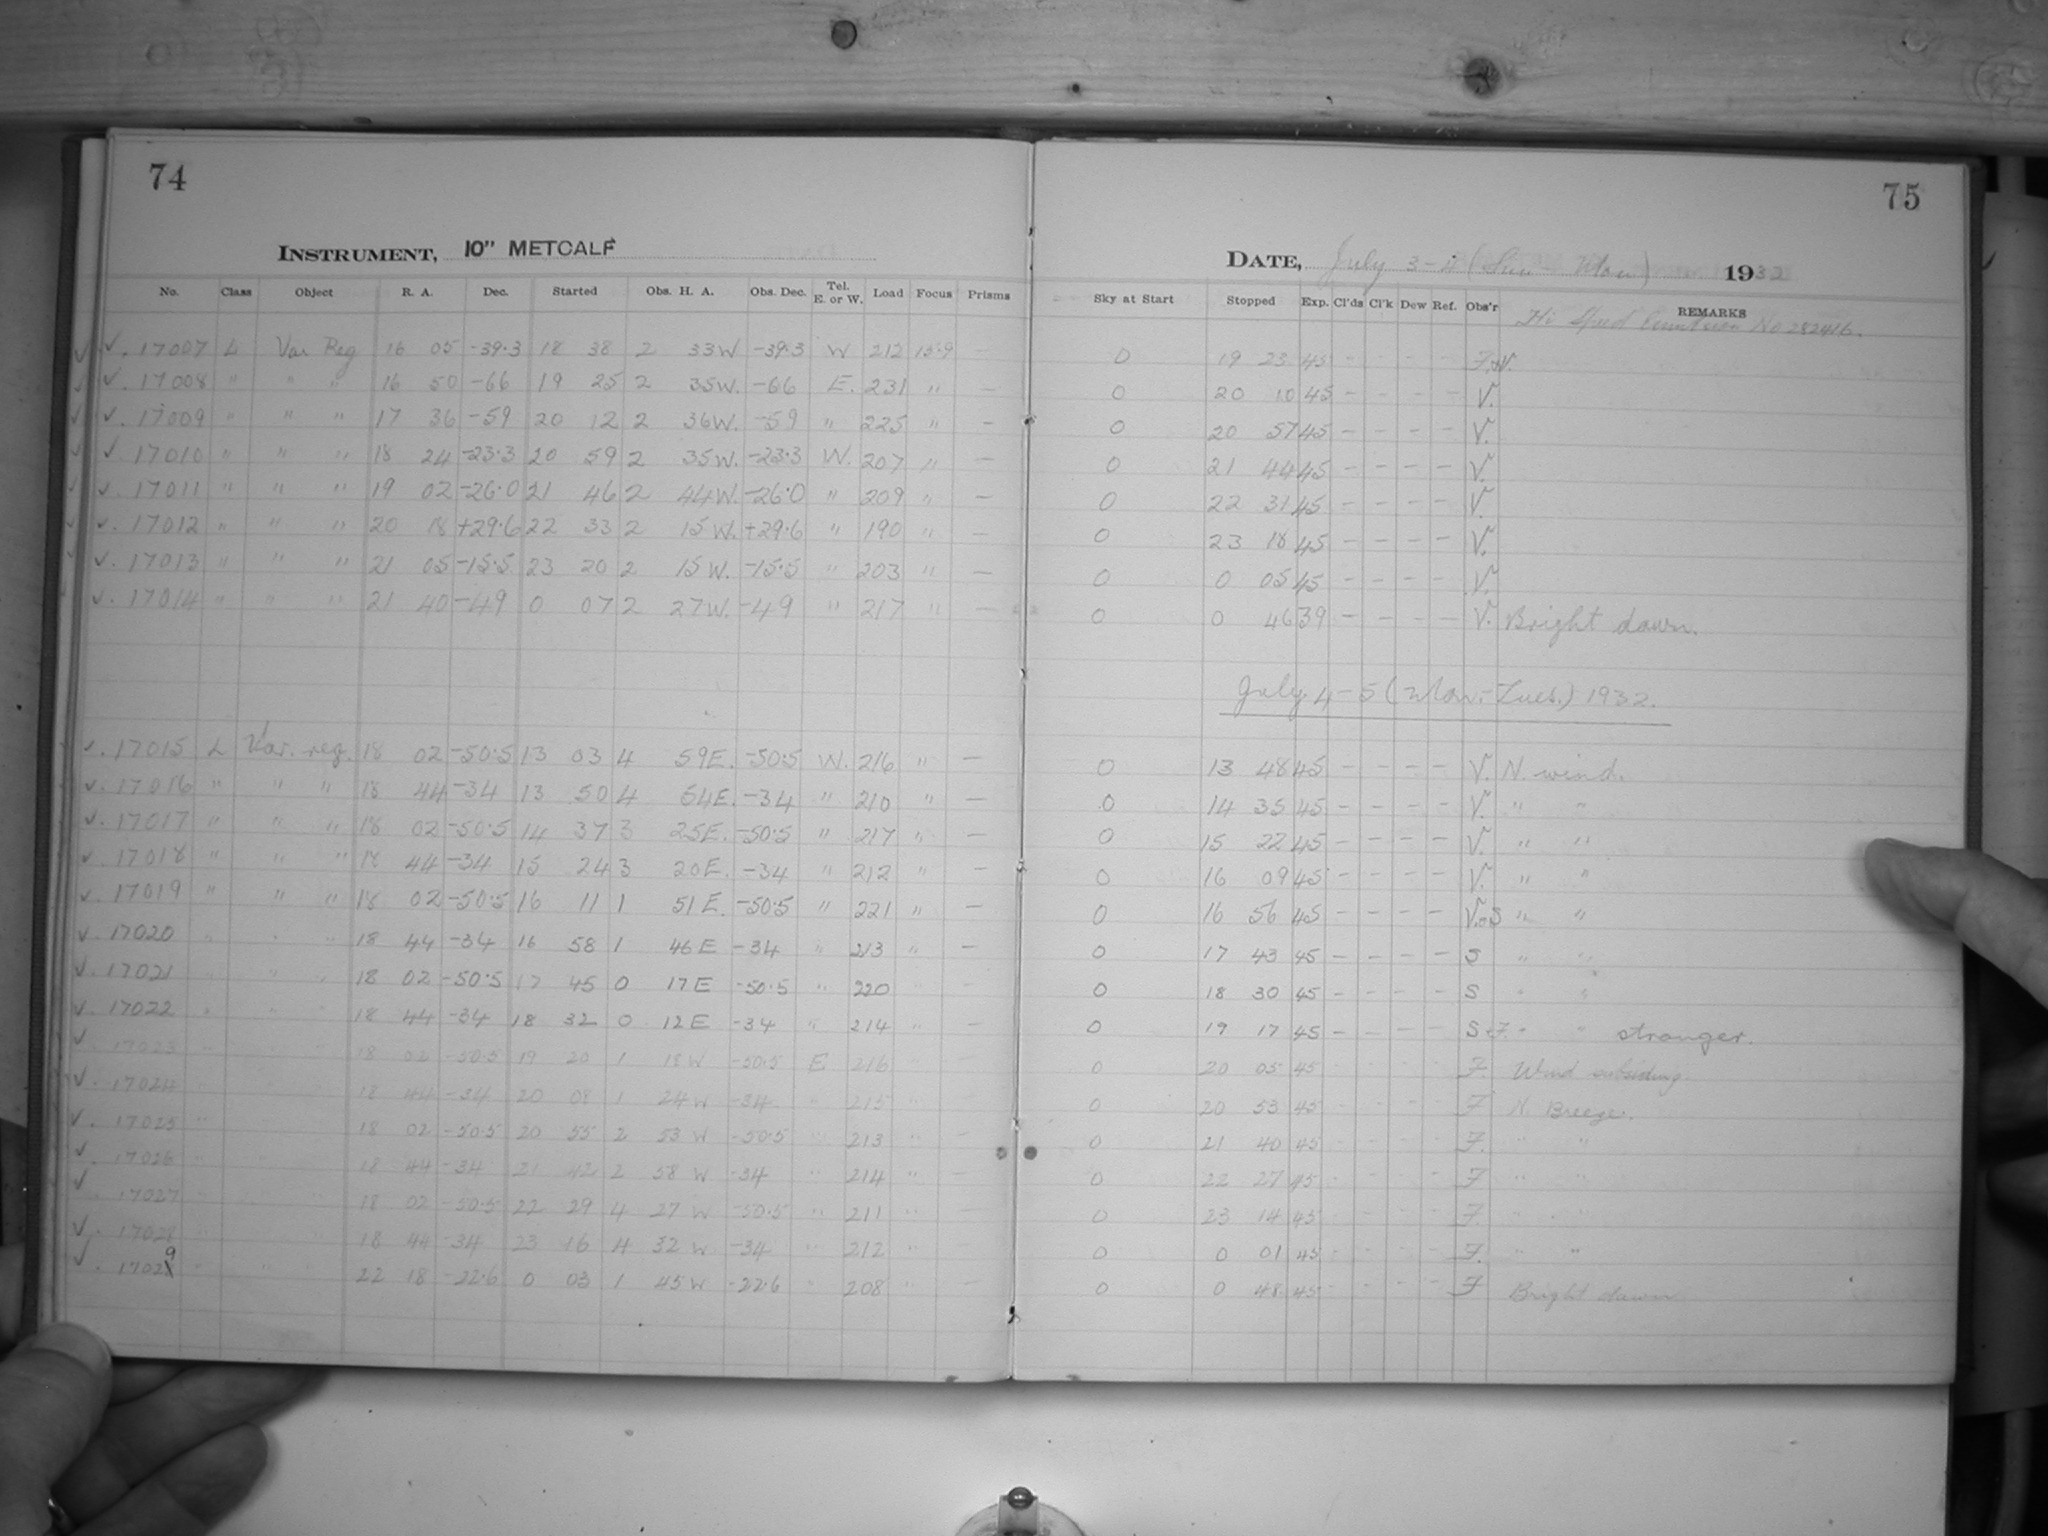 74
INSTRUMENT, 10" METCALF
No. Class Object R. A. Dec. Started Obs. H. A. Obs. Dec. Tel. E. or W. Load Focus Prisms
✓ ✓. 17007 L Var Reg 16 05 -39.3 18 38 2 33W -39.3 W 212 15.9 —
✓ ✓. 17008 " " " 16 50 -66 19 25 2 35W. -66 E. 231 " —
✓ ✓. 17009 " " " 17 36 -59 20 12 2 36W. -59 " 225 " —
✓ ✓ 17010 " " " 18 24 -23.3 20 59 2 35W. -23.3 W. 207 " —
✓ ✓. 17011 " " " 19 02 -26.0 21 46 2 44W. -26.0 " 209 " —
✓ ✓. 17012 " " " 20 18 +29.6 22 33 2 15W. +29.6 " 190 " —
✓ ✓. 17013 " " " 21 05 -15.5 23 20 2 15W. -15.5 " 203 " —
✓. 17014 " " " 21 40 -49 0 07 2 27W. -49 " 217 " —
✓. 17015 L Var. reg. 18 02 -50.5 13 03 4 59E. -50.5 W. 216 " —
✓. 17016 " " " 18 44 -34 13 50 4 54E. -34 " 210 " —
✓. 17017 " " " 18 02 -50.5 14 37 3 25E. -50.5 " 217 " —
✓. 17018 " " " 18 44 -34 15 24 3 20E. -34 " 212 " —
✓. 17019 " " " 18 02 -50.5 16 11 1 51E. -50.5 " 221 " —
✓. 17020 " " " 18 44 -34 16 58 1 46E -34 " 213 " —
✓. 17021 " " " 18 02 -50.5 17 45 0 17E -50.5 " 220 " —
✓. 17022 " " " 18 44 -34 18 32 0 12E -34 " 214 " —
✓ 17023 " " " 18 02 -50.5 19 20 1 18W -50.5 E 216 " —
✓. 17024 " " " 18 44 -34 20 08 1 24W -34 " 215 " —
✓. 17025 " " " 18 02 -50.5 20 55 2 53W -50.5 " 213 " —
✓. 17026 " " " 18 44 -34 21 42 2 58W -34 " 214 " —
✓ 17027 " " " 18 02 -50.5 22 29 4 27W -50.5 " 211 " —
✓. 17028 " " " 18 44 -34 23 16 4 32W -34 " 212 " —
✓. 17029 " " " 22 18 -22.6 0 03 1 45W -22.6 " 208 " —
75
DATE, July 3-4 (Sun - Mon) 1932
Sky at Start Stopped Exp. Cl'ds Cl'k Dew Ref. Obs'r REMARKS
Hi Speed No 282416.
0 19 23 45 - - - - F.V.
0 20 10 45 - - - - V.
0 20 57 45 - - - - V.
0 21 44 45 - - - - V.
0 22 31 45 - - - - V.
0 23 18 45 - - - - V.
0 0 05 45 - - - - V.
0 0 46 39 - - - - V. Bright dawn.
July 4-5 (Mon.-Tues.) 1932.
0 13 48 45 - - - - V. N. wind.
0 14 35 45 - - - - V. " "
0 15 22 45 - - - - V. " "
0 16 09 45 - - - - V. " "
0 16 56 45 - - - - V.S " "
0 17 43 45 - - - - S " "
0 18 30 45 - - - - S " "
0 19 17 45 - - - - S F. " " stronger.
0 20 05 45 - - - - F. Wind subsiding.
0 20 53 45 - - - - F N. Breeze.
0 21 40 45 - - - - F. " "
0 22 27 45 - - - - F " "
0 23 14 45 - - - - F. " "
0 0 01 45 - - - - F. " "
0 0 48 45 - - - - F Bright dawn